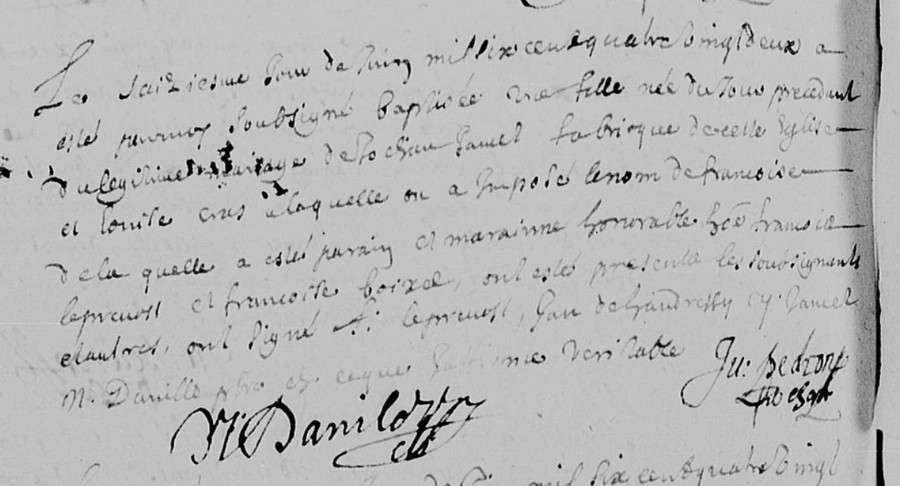 Le saiziesme jour de Juin mil six cens quatre vingt deux a
esté par moy soubsigné baptisée une fille née du jour precedant
du legitime mariage de Jochim Jamet fabricque de cette Eglise
et Louise Cras a laquelle on a imposé le nom de francoise
de la quelle a estés parain et maraine honorable francois
leprevost et francoise ont estés presents les soubsignants
et autres, ont signé leprevost, Jan Jamet
N. Danillo pbre veritable
N: Danilo
Ju: pedron
mil six cent quatre vingt